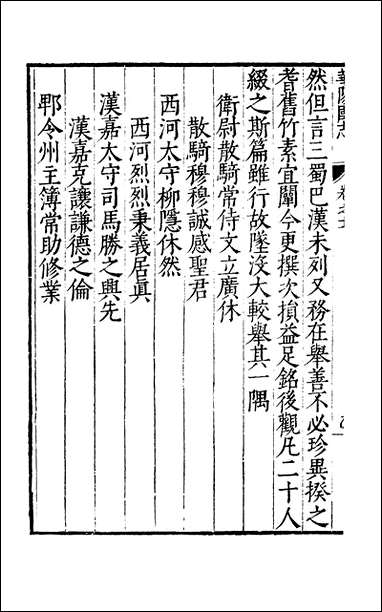 華陽國志
卷之十一
然但言三蜀巴漢未列又務在舉善不必珍異揆之
耆舊竹素宜闡今更撰次損益足銘後觀凡二十人
綴之斯篇雖行故墜没大較舉其一隅
衛尉散騎常侍文立廣休
散騎穆穆誠感聖君
西河太守柳隱休然
西河烈烈秉義居眞
漢嘉太守司馬勝之興先
漢嘉克讓謙德之倫
郫令州主簿常勖修業